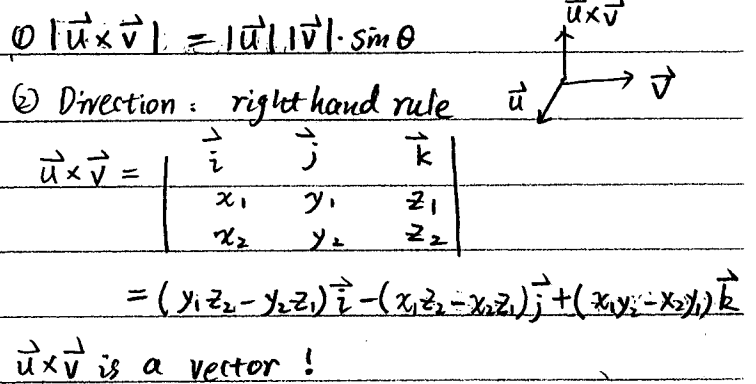 ① |u⃗ × v⃗| = |u⃗| |v⃗| · sin θ
u⃗ × v⃗
② Direction : right hand rule
u⃗
v⃗
u⃗ × v⃗ = | i⃗ j⃗ k⃗ |
x₁ y₁ z₁
x₂ y₂ z₂
= (y₁z₂ - y₂z₁) i⃗ - (x₁z₂ - x₂z₁) j⃗ + (x₁y₂ - x₂y₁) k⃗
u⃗ × v⃗ is a vector !